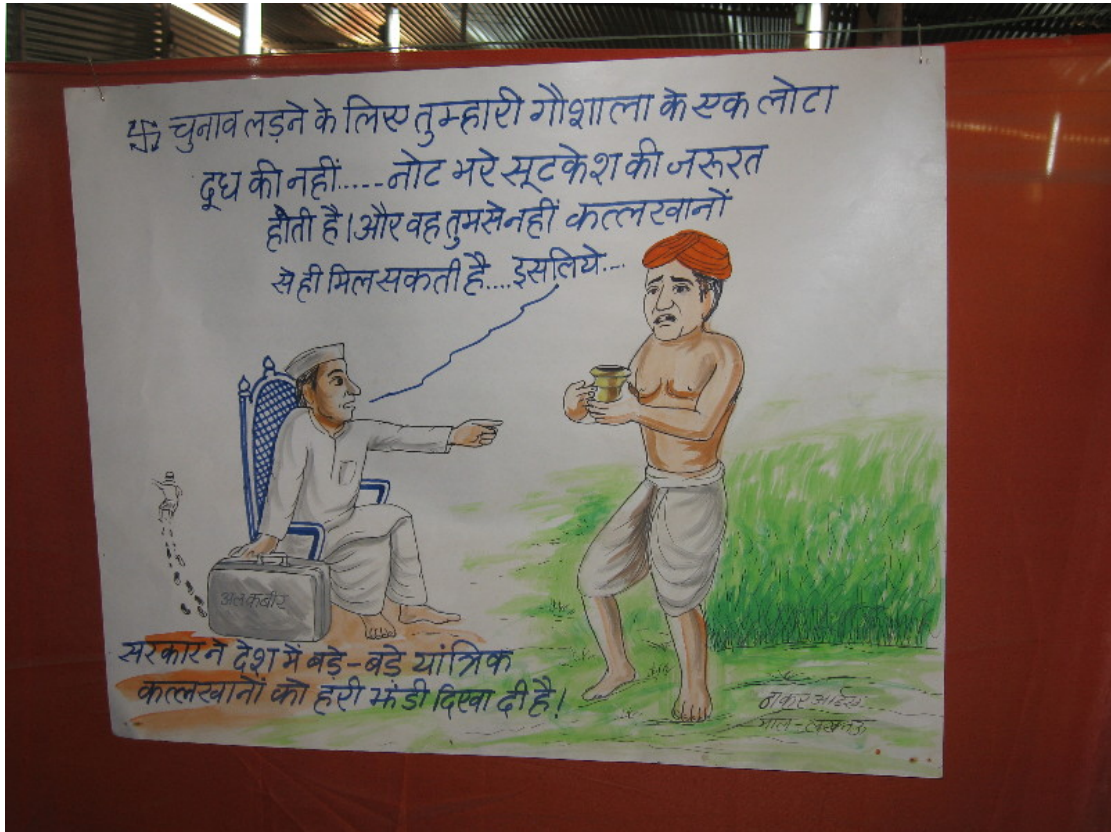 卐 चुनाव लड़ने के लिए तुम्हारी गौशाला के एक लोटा
दूध की नहीं.....नोट भरे सूटकेश की जरूरत
होती है। और वह तुमसे नहीं कत्लखानों
से ही मिल सकती है....इसलिये...
अलकबीर
सरकार ने देश में बड़े-बड़े यांत्रिक
कत्लखानों को हरी झंडी दिखा दी है!
ठाकुर आर्ट्स
माल-लखनऊ